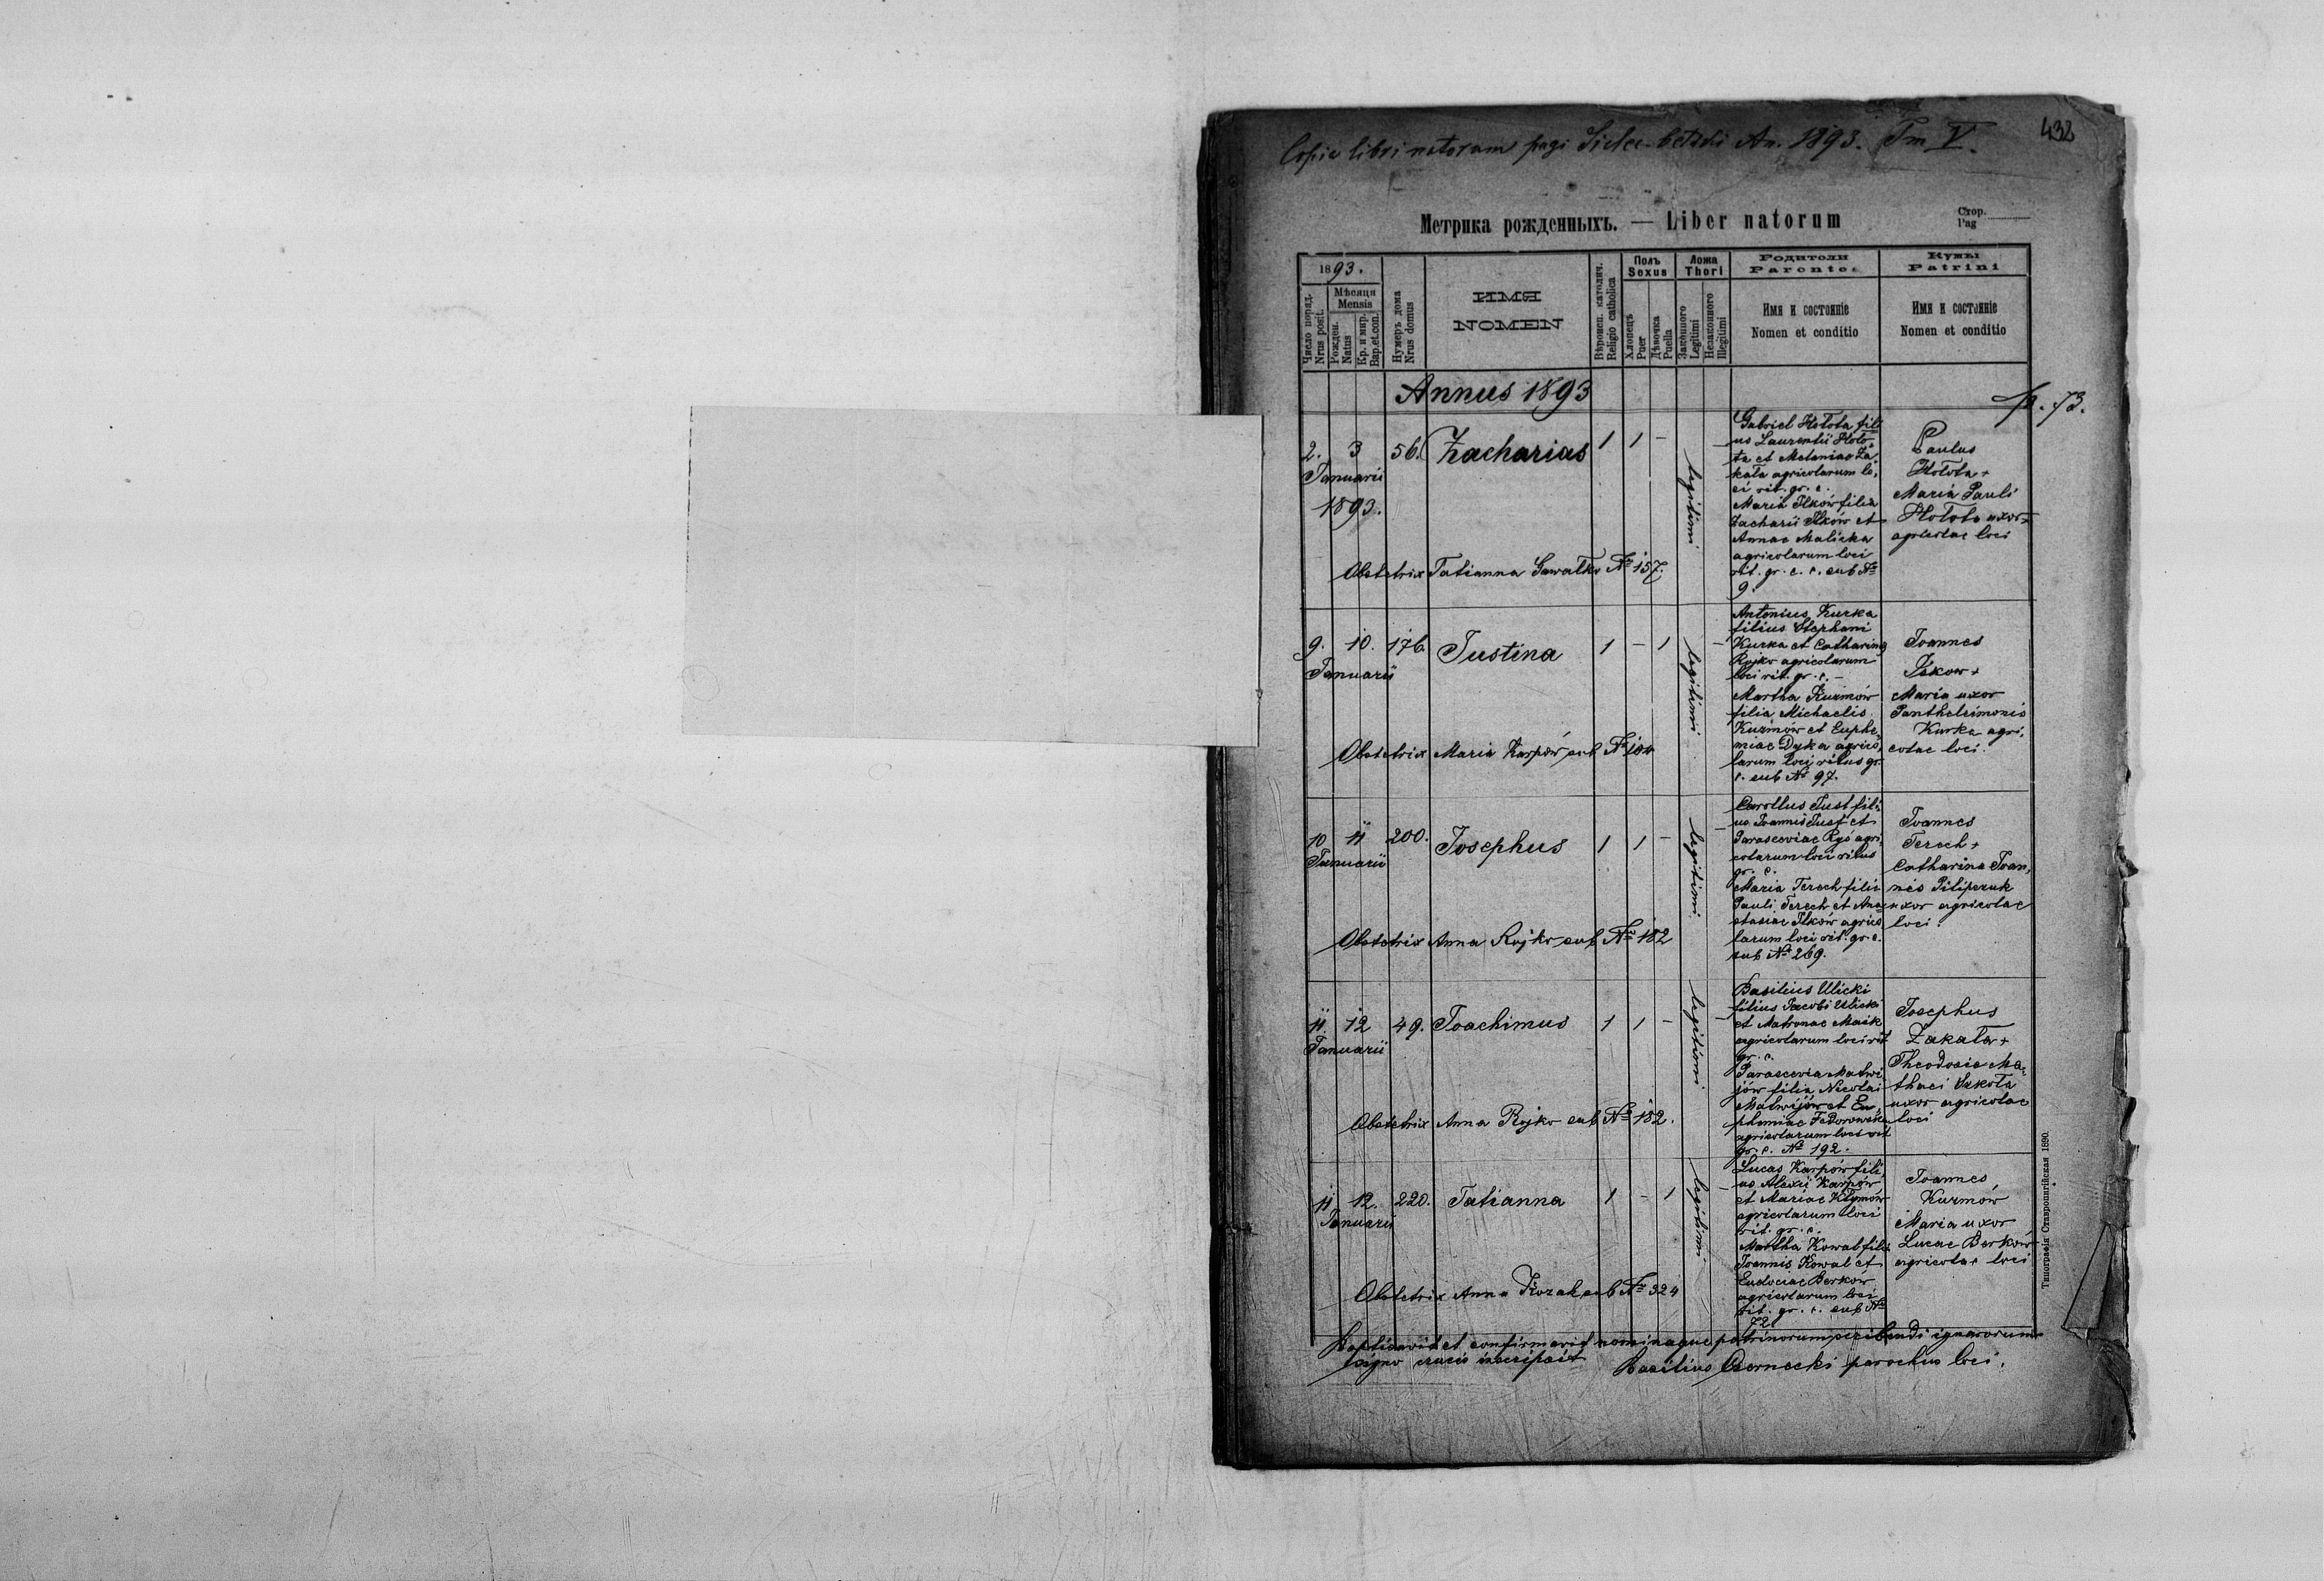 432
Copia libri natorum pagi An. 1893. Tm V.
Метрика рожденныхъ. — Liber natorum
Стор.
Pag
1893.
Число поряд.
Nrus posit.
Мѣсяця
Mensis
Рожден.
Natus
Кр. и мир.
Bap.et.con.
Нумеръ дома
Nrus domus
ИМЯ
NOMEN
Вѣроисп. католич.
Religio catholica
Полъ
Sexus
Хлопецъ
Puer
Дѣвочка
Puella
Ложа
Thori
Законного
Legitimi
Незаконного
Illegitimi
Родители
Parentes
Имя и состояніе
Nomen et conditio
Кумы
Patrini
Имя и состояніе
Nomen et conditio
Annus 1893
p. 73.
2. 3 56. Zacharias 1 1 –
Januarii
1893.
legitimi
Gabriel Hołota fili
us Laurentii Hoło-
ta et Melaniae Za-
kała agricolarum lo-
ci rit. gr. c.
Maria Ilków filia
Zacharii Ilków et
Annae Malicka
agricolarum loci
rit. gr. c. c. sub No
9.
Paulus
Hołota +
Maria Pauli
Hołota uxor +
agricolae loci
Obstetrix Tatianna Gawałko No 157.
9. 10. 176. Justina 1 – 1
Januarii
legitimi
Antonius Kurka
filius Stephani
Kurka et Catharina
Rojko agricolarum
loci rit. gr. c. –
Martha Kuzmów
filia Michaelis
Kuzmów et Euphe-
miae Dyka agrico-
larum loci ritus gr.
c. sub No 97.
Joannes
Ilkow +
Maria uxor
Pantheleimonis
Kurka agri-
colae loci.
Obstetrix Maria Karpów sub No 184
10 11 200. Josephus 1 1 –
Januarii
legitimi
Carollus Just fili-
us Joannis Just et
Parasceviae Ryś agri-
colarum loci ritus
gr. c.
Maria Terech filia
Pauli Terech et Ana-
stasiae Ilków agrico
larum loci rit. gr. c.
sub No 269.
Joannes
Terech +
Catharina Joan-
nis Pilipczuk
uxor agricolae
loci.
Obstetrix Anna Rojko sub No 182
11. 12 49. Joachimus 1 1 –
Januarii
legitimi
Basilius Ulicki
filius Jacobi Ulicki
et Matronae Maik
agricolarum loci rit
gr. c.
Parascevia Matwi-
jów filia Nicolai
Matwijów et Eu-
phemiae Fedorowska
agricolarum loci rit
gr. c. No 192.
Josephus
Zakała +
Theodosia Ma-
thaei Szkoła
uxor agricolae
loci
Obstetrix Anna Rojko sub No 182.
11 12. 220. Tatianna 1 – 1
Januarii
legitimi
Lucas Karpów fili
us Alexii Karpów
et Mariae Klymów
agricolarum loci
rit. gr. c.
Martha Kowal filia
Joannis Kowal et
Eudociae Berków
agricolarum loci
rit. gr. c. sub No
72.
Joannes
Kuzmów
Maria uxor
Lucae Berków
agricolae loci
Obstetrix Anna Kozak sub No 324
Baptisavit et confirmavit nominaque patrinorum scribendi ignarorum
signo crucis inscripsit Basilius Czernecki parochus loci.
Типографія Ставропигійская 1890.